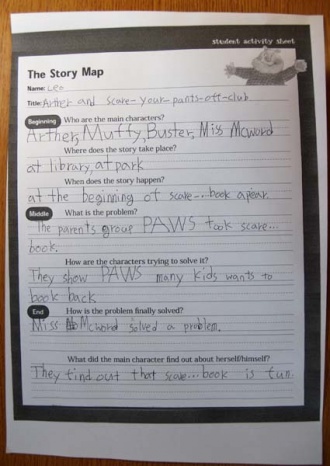 student activity sheet
The Story Map
Name: Leo
Title: Arther and scare-your-pants-off-club
Beginning Who are the main characters?
Arther, Muffy, Buster, Miss Mcword
Where does the story take place?
at library, at park
When does the story happen?
at the beginning of scare-...book apear.
Middle What is the problem?
The parents groue PAWS took scare...
book.
How are the characters trying to solve it?
They show PAWS many kids wants to
book back
End How is the problem finally solved?
Miss Mcword solved a problem.
What did the main character find out about herself/himself?
They find out that scare...book is fun.